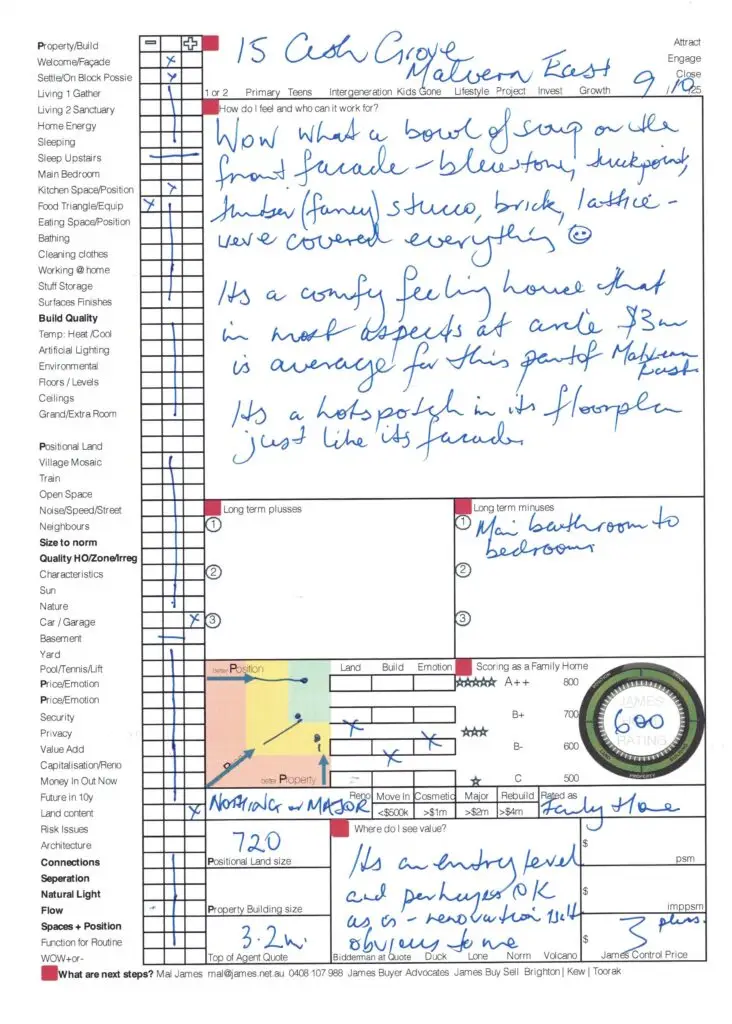 Property/Build
Welcome/Façade
Settle/On Block Possie
Living 1 Gather
Living 2 Sanctuary
Home Energy
Sleeping
Sleep Upstairs
Main Bedroom
Kitchen Space/Position
Food Triangle/Equip
Eating Space/Position
Bathing
Cleaning clothes
Working @ home
Stuff Storage
Surfaces Finishes
Build Quality
Temp: Heat /Cool
Artificial Lighting
Environmental
Floors / Levels
Ceilings
Grand/Extra Room
Positional Land
Village Mosaic
Train
Open Space
Noise/Speed/Street
Neighbours
Size to norm
Quality HO/Zone/Irreg
Characteristics
Sun
Nature
Car / Garage
Basement
Yard
Pool/Tennis/Lift
Price/Emotion
Price/Emotion
Security
Privacy
Value Add
Capitalisation/Reno
Money In Out Now
Future in 10y
Land content
Risk Issues
Architecture
Connections
Seperation
Natural Light
Flow
Spaces + Position
Function for Routine
WOW+or-
15 Cash Grove
Malvern East
Attract
Engage
Close
9 / 10 /25
1 or 2 Primary Teens Intergeneration Kids Gone Lifestyle Project Invest Growth
How do I feel and who can it work for?
Wow what a bowl of soup on the
front facade - bluestone, tuckpoint,
timber (fancy) stucco, brick, lattice -
weve covered everything ☺
Its a comfy feeling house that
in most aspects at circle $3m
is average for this part of Malvern
East.
Its a hotspotch in its floorplan
just like its facade.
Long term plusses
1
2
3
Long term minuses
1 Main bathroom to
bedrooms
2
3
better Position
better Property
Land Build Emotion
Scoring as a Family Home
★★★★★ A++ 800
B+ 700
★★★
B- 600
★ C 500
JAMES
600
RATING
PROPERTY
NOTHING or MAJOR
Reno Move In Cosmetic Major Rebuild Rated as
<$500k >$1m >$2m >$4m
Family Home
720
Positional Land size
Property Building size
3.2m
Top of Agent Quote
Where do I see value?
Its an entry level
and perhaps OK
as is - renovation isnt
obvious to me
Bidderman at Quote Duck Lone Norm Volcano
$
psm
$
imppsm
$ 3 plus.
James Control Price
What are next steps? Mal James mal@james.net.au 0408 107 988 James Buyer Advocates James Buy Sell Brighton | Kew | Toorak